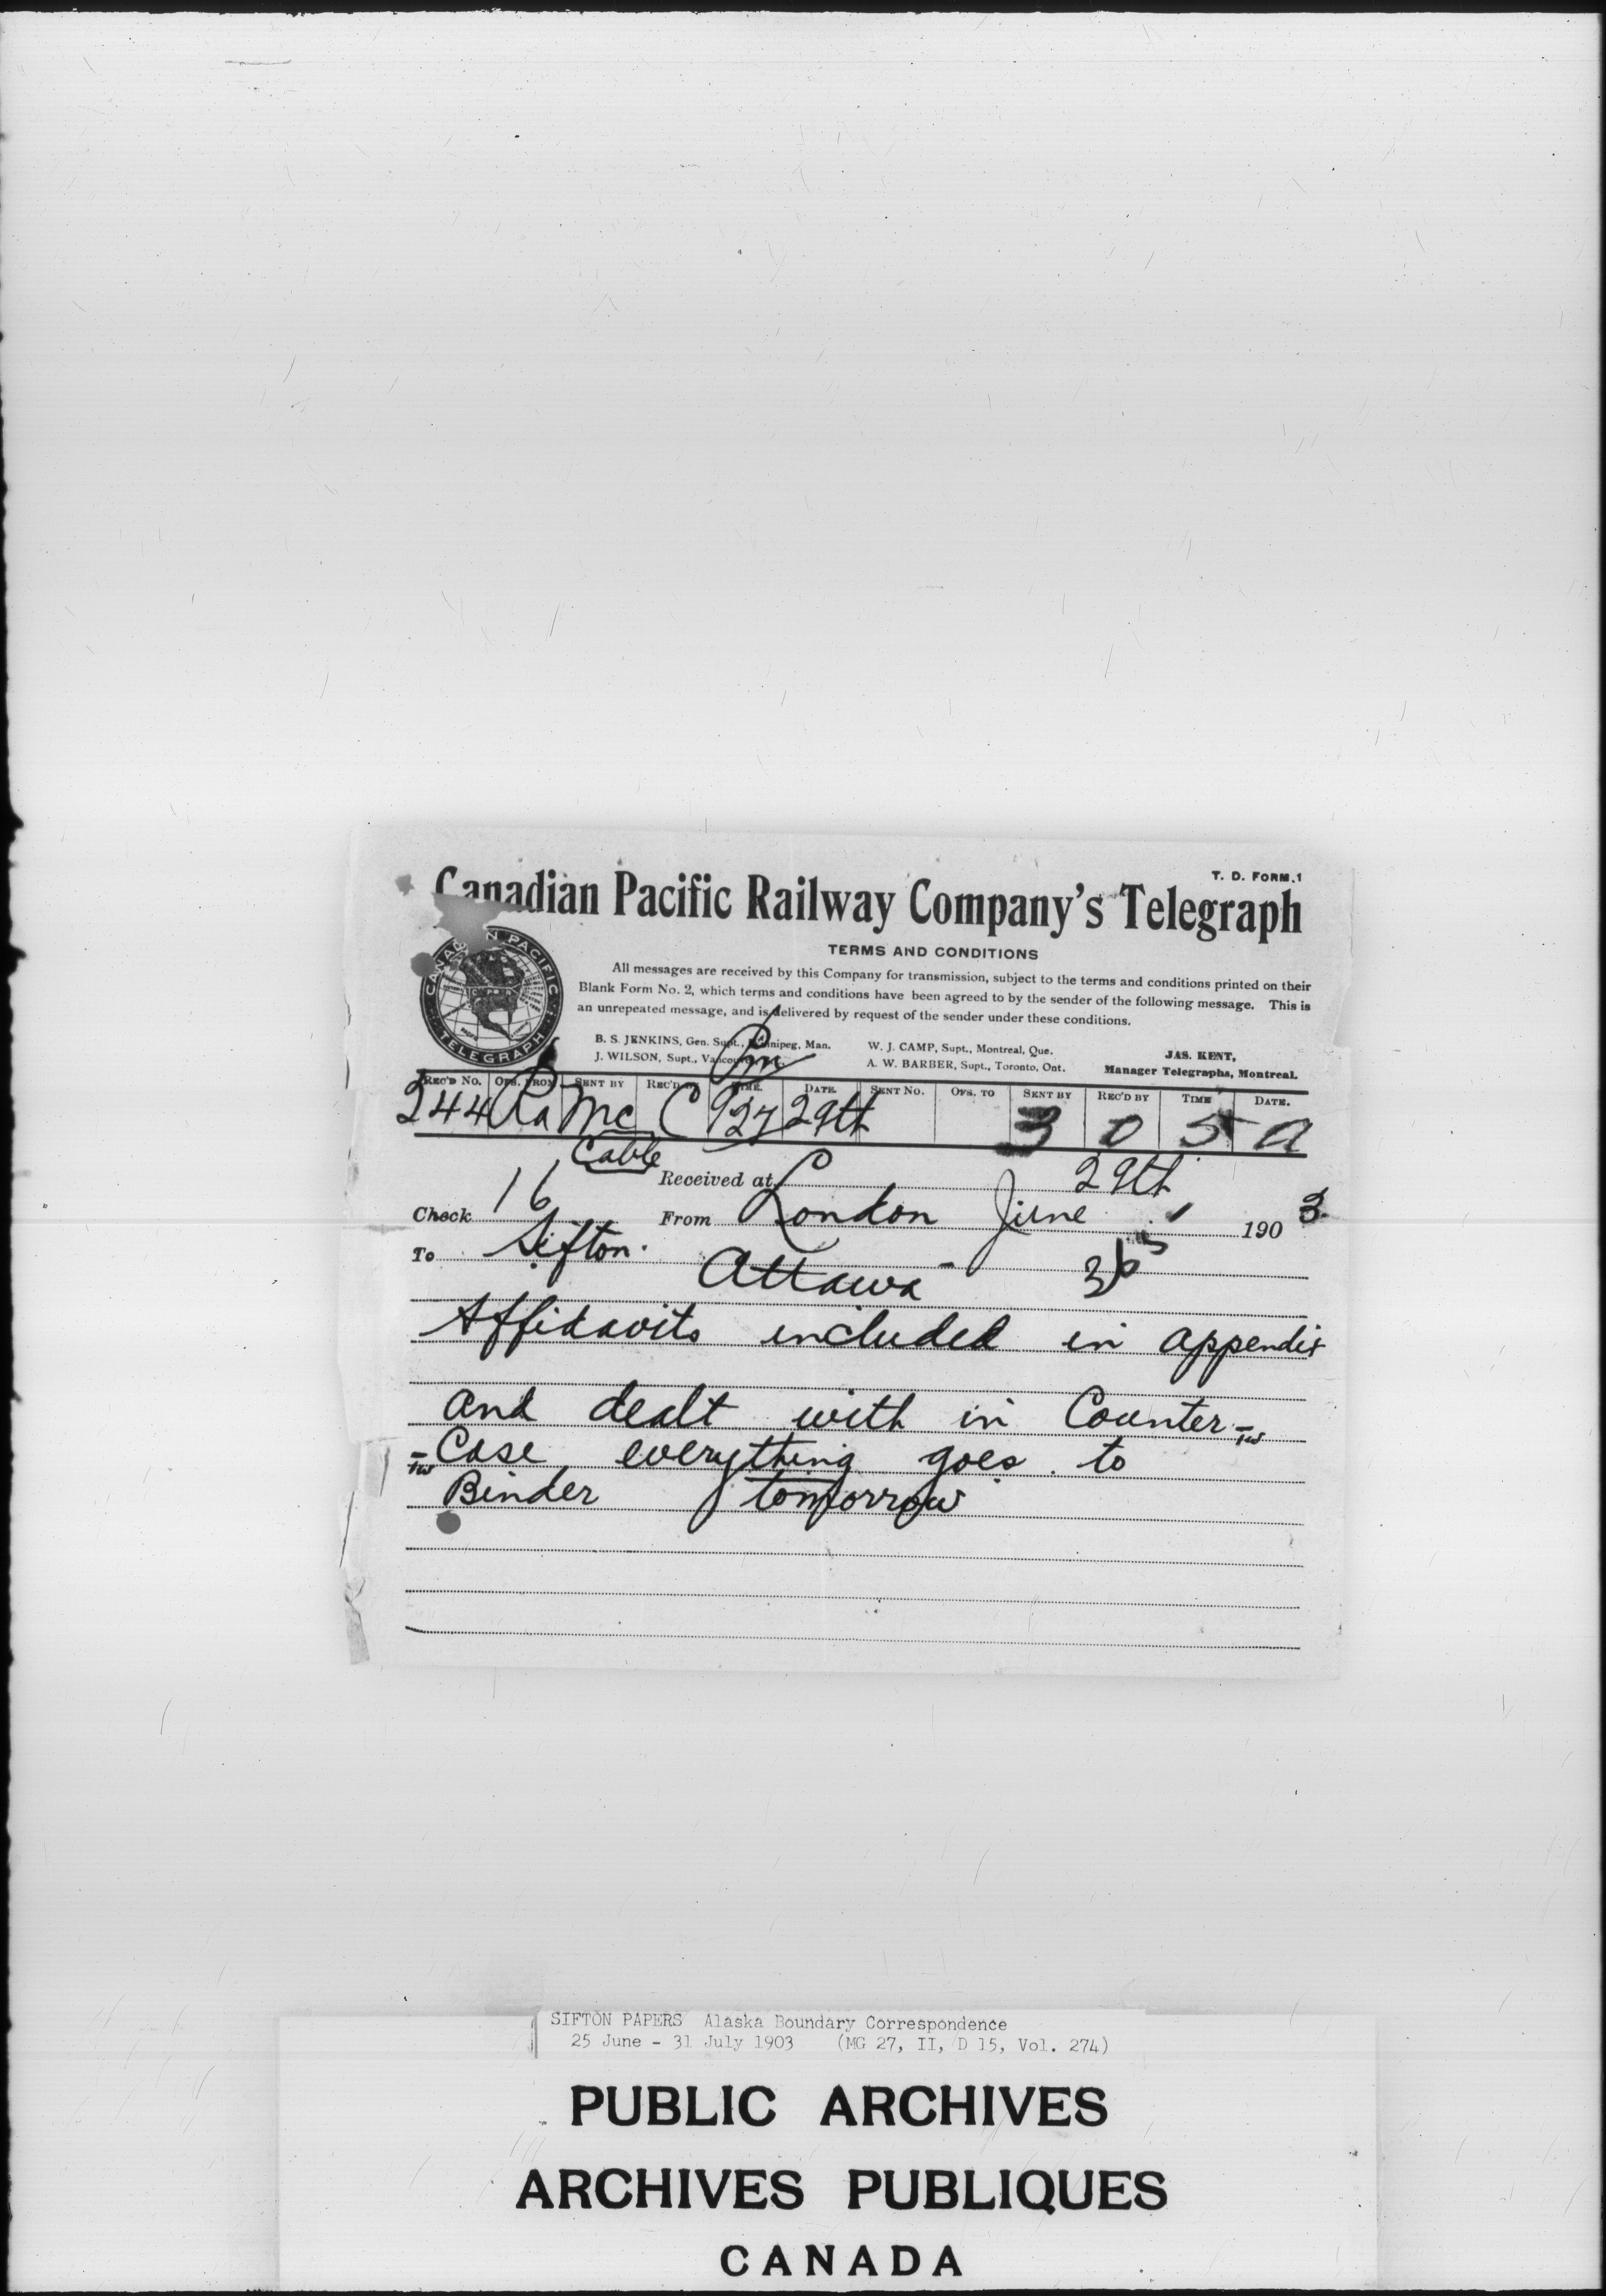 T. D. FORM.1
Canadian Pacific Railway Company's Telegraph
CANADIAN PACIFIC
TELEGRAPH
TERMS AND CONDITIONS
All messages are received by this Company for transmission, subject to the terms and conditions printed on their
Blank Form No. 2, which terms and conditions have been agreed to by the sender of the following message. This is
an unrepeated message, and is delivered by request of the sender under these conditions.
B. S. JENKINS, Gen. Supt., Winnipeg, Man.
J. WILSON, Supt., Vancouver,
W. J. CAMP, Supt., Montreal, Que.
A. W. BARBER, Supt., Toronto, Ont.
JAS. KENT,
Manager Telegraphs, Montreal.
Pm
REC'D No. OFS. FROM SENT BY REC'D BY TIME. DATE. SENT No. OFS. TO SENT BY REC'D BY TIME DATE.
244 Ra Mc C 927 29th 3 0 5 a
Cable
Received at 29th
Check 16 From London June 190 3
To Sifton.
Ottawa
Affidavits included in appendix
and dealt with in Counter-
-Case everything goes to
Binder tomorrow
SIFTON PAPERS Alaska Boundary Correspondence
25 June - 31 July 1903 (MG 27, II, D 15, Vol. 274)
PUBLIC ARCHIVES
ARCHIVES PUBLIQUES
CANADA